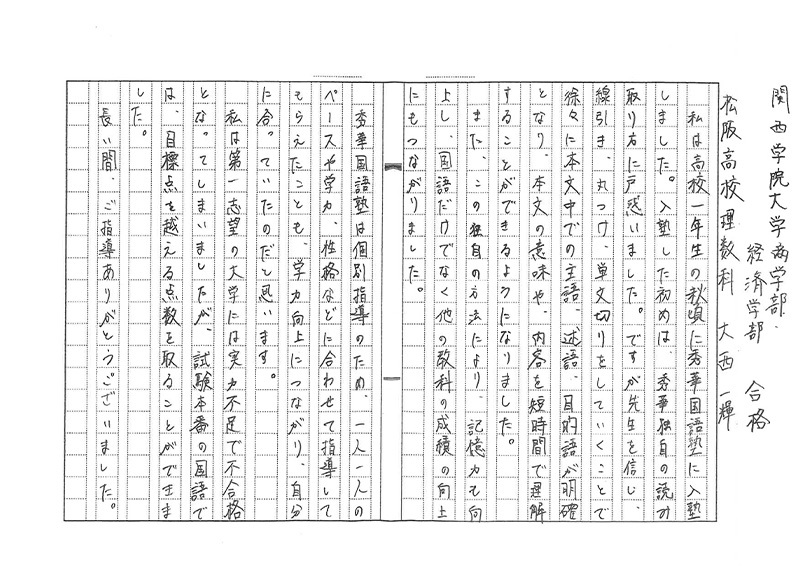 関西学院大学商学部、
経済学部 合格
松阪高校理数科 大西一輝
私は高校一年生の秋頃に秀華国語塾に入塾
しました。入塾した初めは、秀華独自の読み
取り方に戸惑いました。ですが先生を信じ、
線引き、丸つけ、単文切りをしていくことで
徐々に本文中での主語、述語、目的語が明確
となり、本文の意味や、内容を短時間で理解
することができるようになりました。
また、この独自の方法により、記憶力も向
上し、国語だけでなく他の教科の成績の向上
にもつながりました。
秀華国語塾は個別指導のため、一人一人の
ペースや学力、性格などに合わせて指導して
もらえたことも、学力向上につながり、自分
に合っていたのだと思います。
私は第一志望の大学には実力不足で不合格
となってしまいましたが、試験本番の国語で
は、目標点を越える点数を取ることができま
した。
長い間、ご指導ありがとうございました。